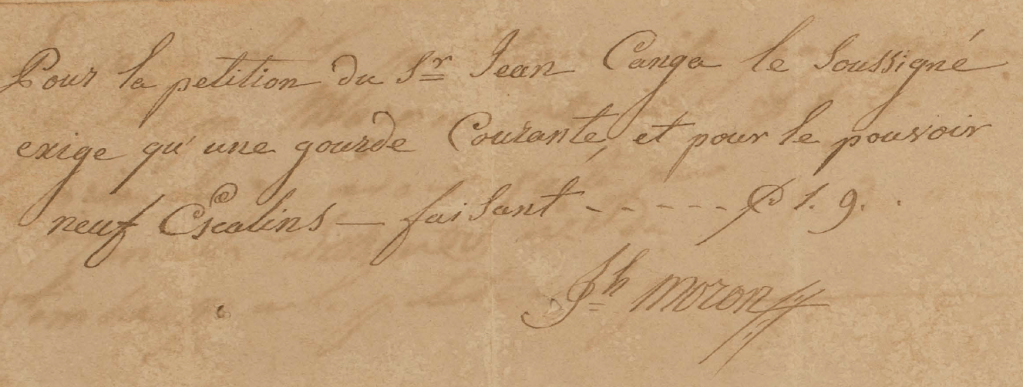 Pour la petition du Sr Jean Canga le Soussigné
exige qu'une gourde Courante, et pour le pouvoir
neuf Escalins — faisant - - - - - P 1. 9. .
Jh moron